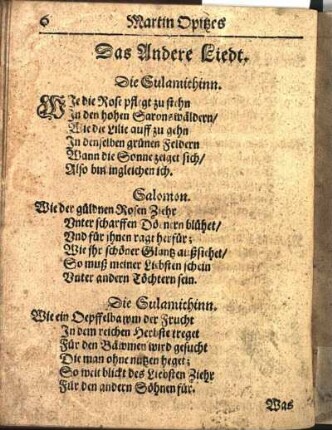 6 Martin Opitzes
Das Andere Liedt.
Die Sulamithinn.
WJe die Rose pflegt zu stehn
Jn den hohen Saronswäldern/
Wie die Lilie auff zu gehn
Jn denselben grünen Feldern
Wann die Sonne zeiget sich/
Also bin ingleichen ich.
Salomon.
Wie der güldnen Rosen Ziehr
Vnter scharffen Dörnern blühet/
Vnd für ihnen ragt herfür;
Wie ihr schöner Glantz außsiehet/
So muß meiner Liebsten schein
Vnter andern Töchtern sein.
Die Sulamithinn.
Wie ein Oepffelbawm der Frucht
Jn dem reichen Herbste treget
Für den Bäwmen wird gesucht
Die man ohne nutzen heget;
So weit blickt des Liebsten Ziehr
Für den andern Söhnen für.
Was